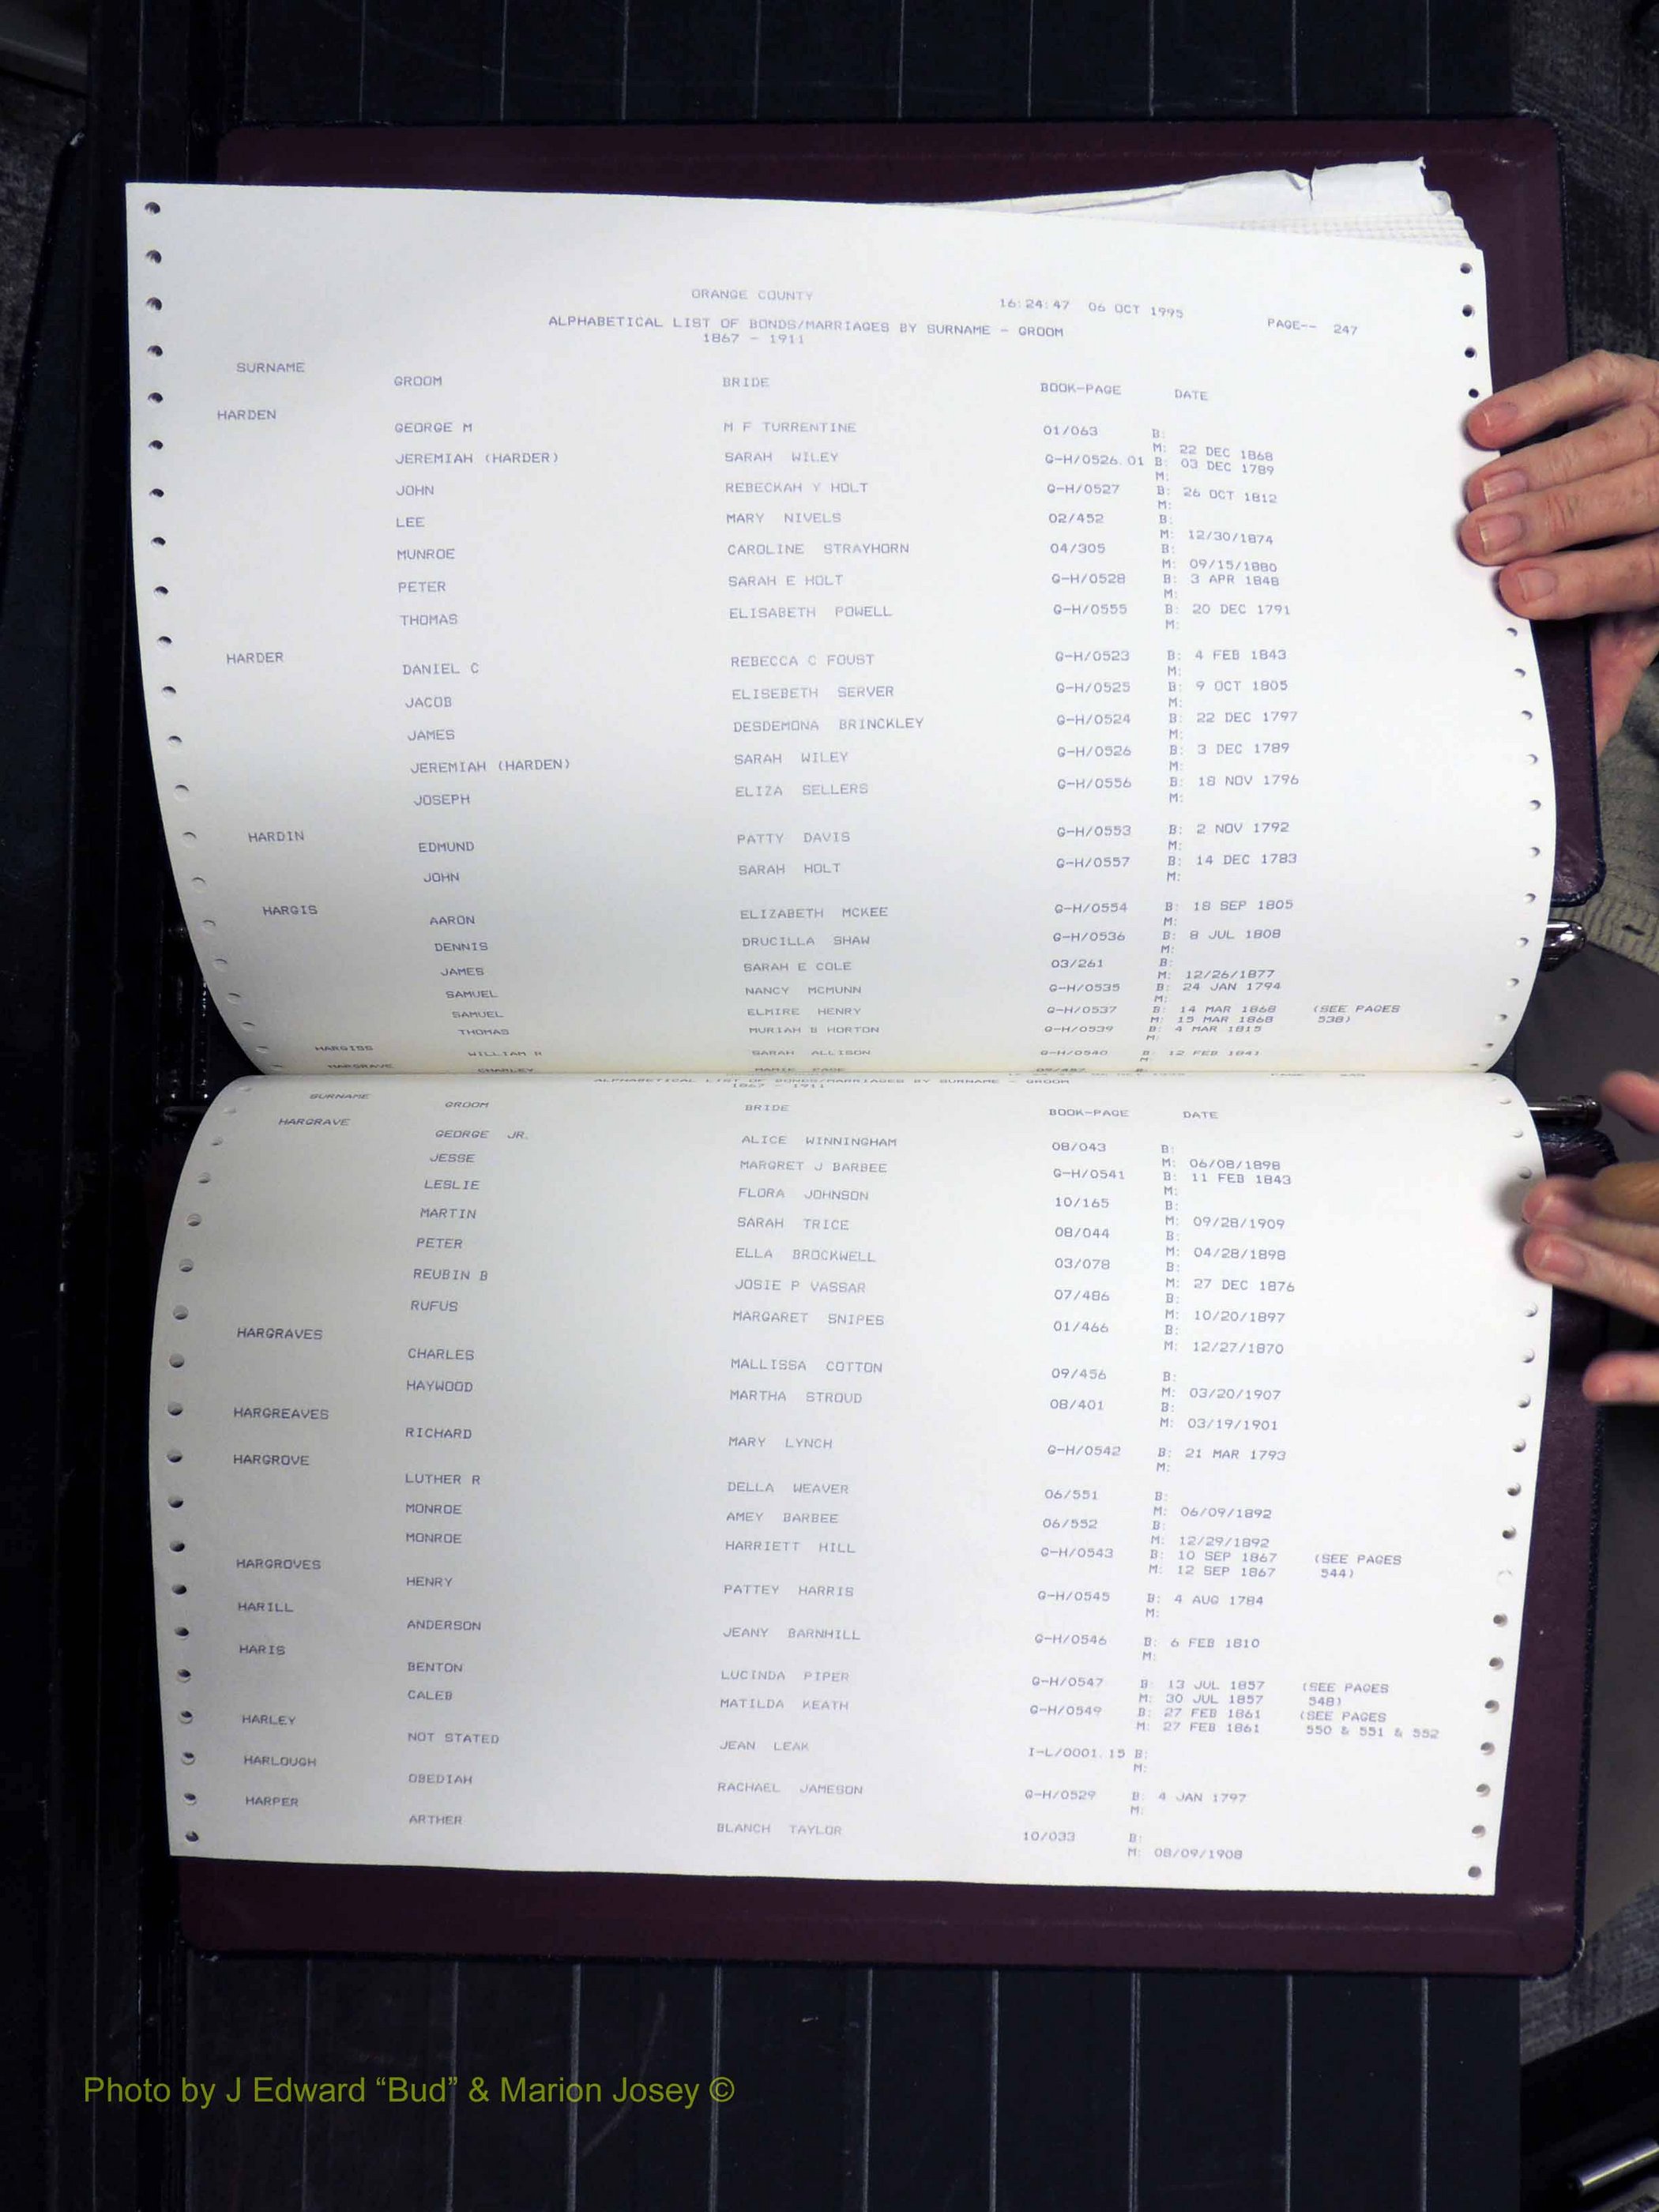 ORANGE COUNTY 16:24:47 06 OCT 1995 PAGE-- 247
ALPHABETICAL LIST OF BONDS/MARRIAGES BY SURNAME - GROOM
1867 - 1911
SURNAME GROOM BRIDE BOOK-PAGE DATE
HARDEN
GEORGE M M F TURRENTINE 01/063 B:
M: 22 DEC 1868
JEREMIAH (HARDER) SARAH WILEY G-H/0526.01 B: 03 DEC 1789
M:
JOHN REBECKAH Y HOLT G-H/0527 B: 26 OCT 1812
M:
LEE MARY NIVELS 02/452 B:
M: 12/30/1874
MUNROE CAROLINE STRAYHORN 04/305 B:
M: 09/15/1880
PETER SARAH E HOLT G-H/0528 B: 3 APR 1848
M:
THOMAS ELISABETH POWELL G-H/0555 B: 20 DEC 1791
M:
HARDER
DANIEL C REBECCA C FOUST G-H/0523 B: 4 FEB 1843
M:
JACOB ELISEBETH SERVER G-H/0525 B: 9 OCT 1805
M:
JAMES DESDEMONA BRINCKLEY G-H/0524 B: 22 DEC 1797
M:
JEREMIAH (HARDEN) SARAH WILEY G-H/0526 B: 3 DEC 1789
M:
JOSEPH ELIZA SELLERS G-H/0556 B: 18 NOV 1796
M:
HARDIN
EDMUND PATTY DAVIS G-H/0553 B: 2 NOV 1792
M:
JOHN SARAH HOLT G-H/0557 B: 14 DEC 1783
M:
HARGIS
AARON ELIZABETH MCKEE G-H/0554 B: 18 SEP 1805
M:
DENNIS DRUCILLA SHAW G-H/0536 B: 8 JUL 1808
M:
JAMES SARAH E COLE 03/261 B:
M: 12/26/1877
SAMUEL NANCY MCMUNN G-H/0535 B: 24 JAN 1794
M:
SAMUEL ELMIRE HENRY G-H/0537 B: 14 MAR 1868 (SEE PAGES
M: 15 MAR 1868 538)
THOMAS MURIAH B HORTON G-H/0539 B: 4 MAR 1815
M:
HARGISS
WILLIAM R SARAH ALLISON G-H/0540 B: 12 FEB 1841
M:
HARGRAVE
CHARLEY MAMIE PAGE B:
ALPHABETICAL LIST OF BONDS/MARRIAGES BY SURNAME - GROOM
1867 - 1911
SURNAME GROOM BRIDE BOOK-PAGE DATE
HARGRAVE
GEORGE JR. ALICE WINNINGHAM 08/043 B:
M: 06/08/1898
JESSE MARGRET J BARBEE G-H/0541 B: 11 FEB 1843
M:
LESLIE FLORA JOHNSON 10/165 B:
M: 09/28/1909
MARTIN SARAH TRICE 08/044 B:
M: 04/28/1898
PETER ELLA BROCKWELL 03/078 B:
M: 27 DEC 1876
REUBIN B JOSIE P VASSAR 07/486 B:
M: 10/20/1897
RUFUS MARGARET SNIPES 01/466 B:
M: 12/27/1870
HARGRAVES
CHARLES MALLISSA COTTON 09/456 B:
M: 03/20/1907
HAYWOOD MARTHA STROUD 08/401 B:
M: 03/19/1901
HARGREAVES
RICHARD MARY LYNCH G-H/0542 B: 21 MAR 1793
M:
HARGROVE
LUTHER R DELLA WEAVER 06/551 B:
M: 06/09/1892
MONROE AMEY BARBEE 06/552 B:
M: 12/29/1892
MONROE HARRIETT HILL G-H/0543 B: 10 SEP 1867 (SEE PAGES
M: 12 SEP 1867 544)
HARGROVES
HENRY PATTEY HARRIS G-H/0545 B: 4 AUG 1784
M:
HARILL
ANDERSON JEANY BARNHILL G-H/0546 B: 6 FEB 1810
M:
HARIS
BENTON LUCINDA PIPER G-H/0547 B: 13 JUL 1857 (SEE PAGES
M: 30 JUL 1857 548)
CALEB MATILDA KEATH G-H/0549 B: 27 FEB 1861 (SEE PAGES
M: 27 FEB 1861 550 & 551 & 552
HARLEY
NOT STATED JEAN LEAK I-L/0001.15 B:
M:
HARLOUGH
OBEDIAH RACHAEL JAMESON G-H/0529 B: 4 JAN 1797
M:
HARPER
ARTHER BLANCH TAYLOR 10/033 B:
M: 08/09/1908
Photo by J Edward “Bud” & Marion Josey ©